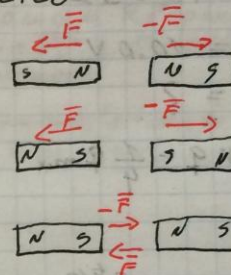 F̅ -F̅
S N N S
F̅ -F̅
N S S N
-F̅
N S N S
F̅